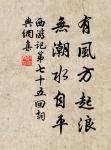 有風方起浪
無潮水自平
西游記第七十五回詞
與綱集